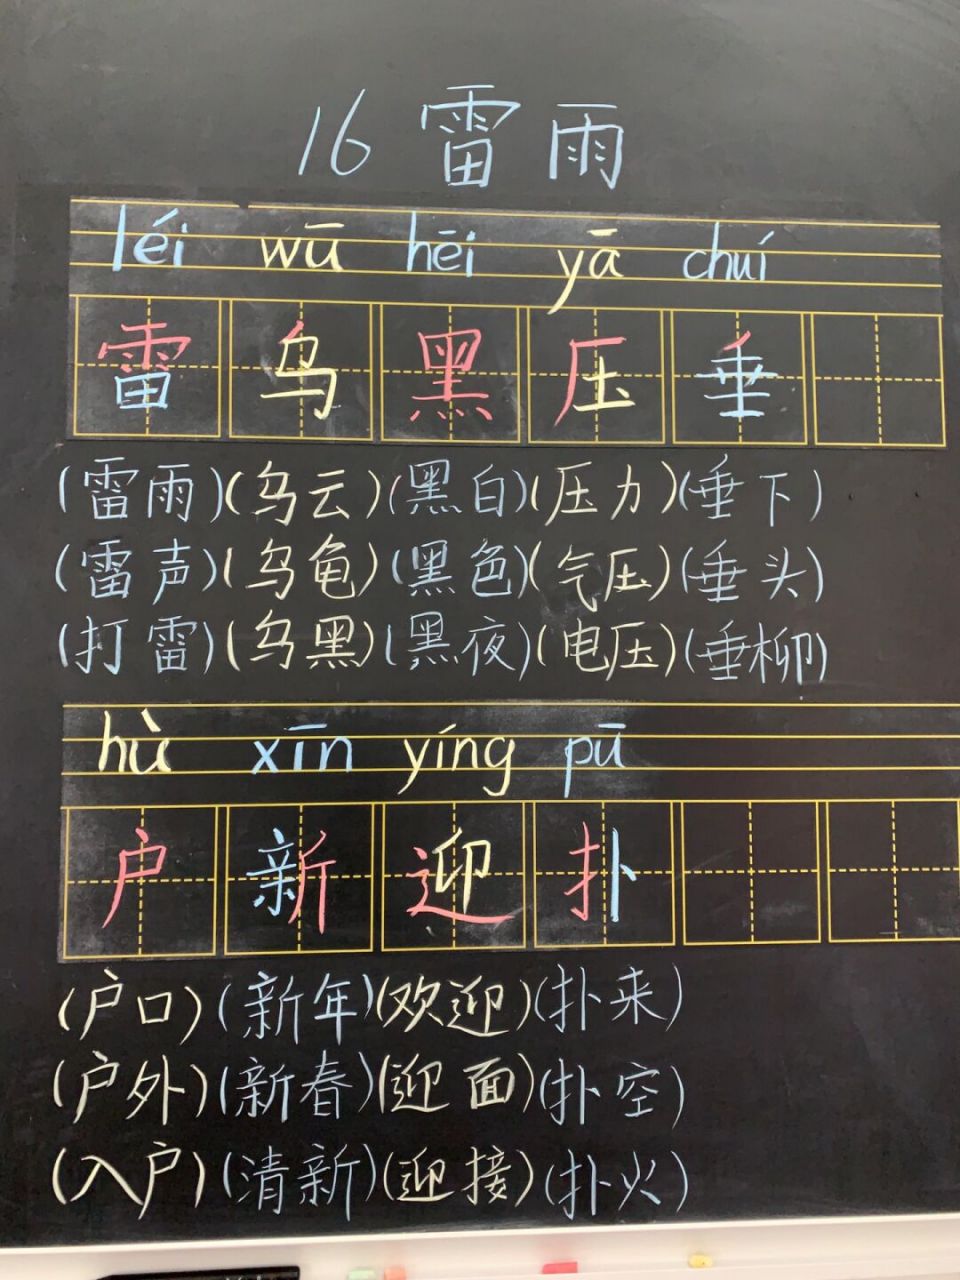 16 雷雨
léi wū hēi yā chuí
雷 乌 黑 压 垂
(雷雨)(乌云)(黑白)(压力)(垂下)
(雷声)(乌龟)(黑色)(气压)(垂头)
(打雷)(乌黑)(黑夜)(电压)(垂柳)
hù xīn yíng pū
户 新 迎 扑
(户口)(新年)(欢迎)(扑来)
(户外)(新春)(迎面)(扑空)
(入户)(清新)(迎接)(扑火)